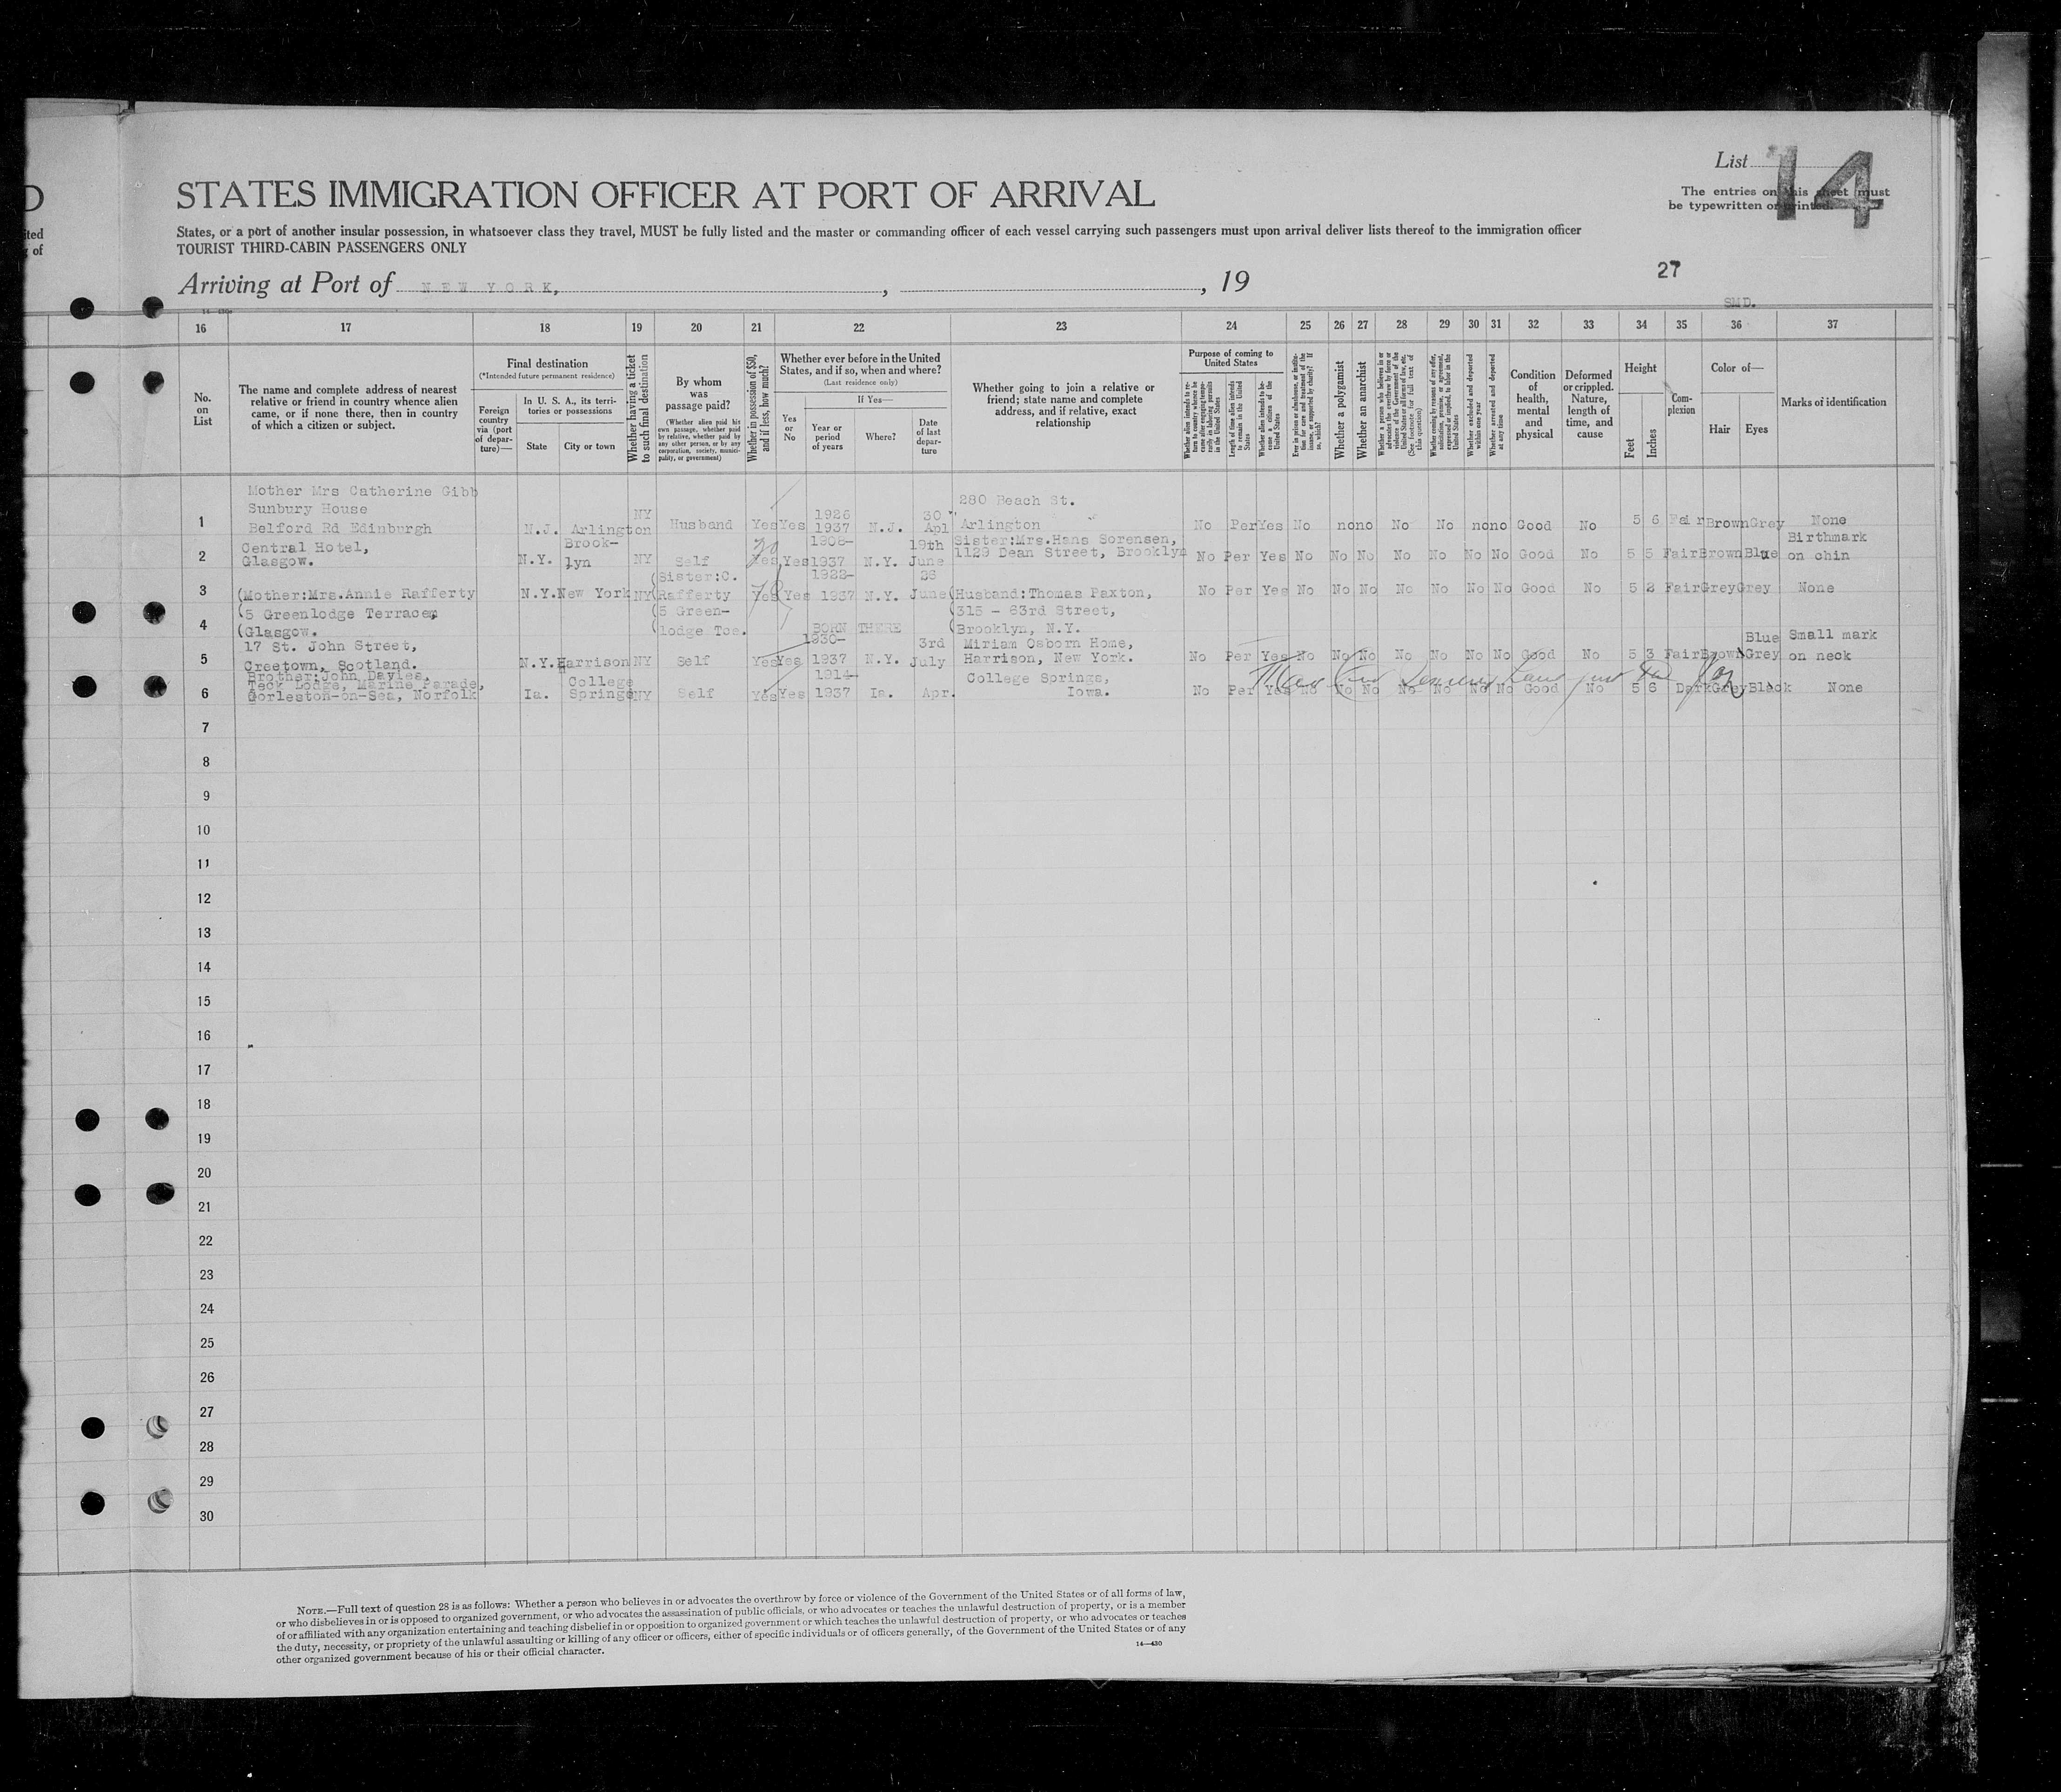 D
ited
of
List 14
STATES IMMIGRATION OFFICER AT PORT OF ARRIVAL
The entries on this sheet must
be typewritten or printed.
States, or a port of another insular possession, in whatsoever class they travel, MUST be fully listed and the master or commanding officer of each vessel carrying such passengers must upon arrival deliver lists thereof to the immigration officer
TOURIST THIRD-CABIN PASSENGERS ONLY
Arriving at Port of NEW YORK, , , 19
27
SMD.
16 17 18 19 20 21 22 23 24 25 26 27 28 29 30 31 32 33 34 35 36 37
No. on List
The name and complete address of nearest
relative or friend in country whence alien
came, or if none there, then in country
of which a citizen or subject.
Final destination
(*Intended future permanent residence)
Foreign country via (port of departure)—
In U. S. A., its territories or possessions
State City or town
Whether having a ticket to such final destination
By whom was passage paid?
(Whether alien paid his own passage, whether paid by relative, whether paid by any other person, or by any corporation, society, municipality, or government)
Whether in possession of $50, and if less, how much?
Whether ever before in the United
States, and if so, when and where?
(Last residence only)
Yes or No
If Yes—
Year or period of years
Where?
Date of last departure
Whether going to join a relative or
friend; state name and complete
address, and if relative, exact
relationship
Purpose of coming to United States
Length of time alien intends to remain in the United States
Whether a polygamist
Whether an anarchist
Whether excluded and deported within one year
Whether arrested and deported at any time
Condition of health, mental and physical
Deformed or crippled. Nature, length of time, and cause
Height
Feet Inches
Complexion
Color of—
Hair Eyes
Marks of identification
Mother Mrs Catherine Gibb
Sunbury House 280 Beach St.
1 Belford Rd Edinburgh N.J. Arlington NY Husband Yes Yes 1926 1937 N.J. 30 Apl Arlington No Per Yes No no no No No no no Good No 5 6 Fair Brown Grey None
Central Hotel, Sister:Mrs.Hans Sorensen, Birthmark
2 Glasgow. N.Y. Brook-lyn NY Self 30 Yes Yes 1908-1937 N.Y. 19th June 1129 Dean Street, Brooklyn No Per Yes No No No No No No No Good No 5 5 Fair Brown Blue on chin
3 (Mother:Mrs.Annie Rafferty N.Y. New York NY (Sister:C. (Rafferty Yes Yes 1922-1937 N.Y. 26 June (Husband:Thomas Paxton, No Per Yes No No No No No No No Good No 5 2 Fair Grey Grey None
(5 Greenlodge Terrace, (5 Green- (315 - 63rd Street,
4 (Glasgow. (lodge Tce. BORN THERE (Brooklyn, N.Y.
17 St. John Street, Miriam Osborn Home, Blue Small mark
5 Creetown, Scotland. N.Y. Harrison NY Self Yes Yes 1930-1937 N.Y. 3rd July Harrison, New York. No Per Yes No No No No No No No Good No 5 3 Fair Brown Grey on neck
Brother:John Davies,
Teck Lodge, Marine Parade, College Springs,
6 Gorleston-on-Sea, Norfolk Ia. College Springs NY Self Yes Yes 1914-1937 Ia. Apr. Iowa. No Per Yes No No No No No No No Good No 5 6 Dark Grey Black None
7
8
9
10
11
12
13
14
15
16
17
18
19
20
21
22
23
24
25
26
27
28
29
30
NOTE.—Full text of question 28 is as follows: Whether a person who believes in or advocates the overthrow by force or violence of the Government of the United States or of all forms of law,
or who disbelieves in or is opposed to organized government, or who advocates the assassination of public officials, or who advocates or teaches the unlawful destruction of property, or is a member
of or affiliated with any organization entertaining and teaching disbelief in or opposition to organized government or which teaches the unlawful destruction of property, or who advocates or teaches
the duty, necessity, or propriety of the unlawful assaulting or killing of any officer or officers, either of specific individuals or of officers generally, of the Government of the United States or of any
other organized government because of his or their official character.
14—430